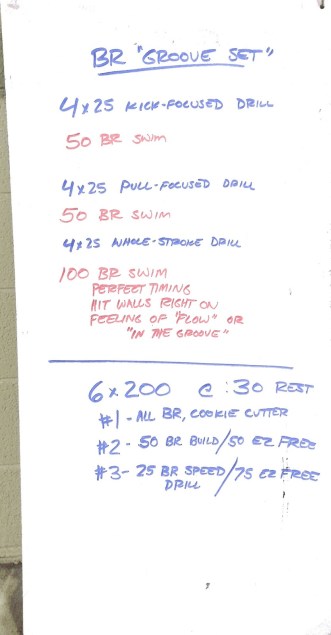 BR "GROOVE SET"
4x25 KICK-FOCUSED DRILL
50 BR SWIM
4x25 PULL-FOCUSED DRILL
50 BR SWIM
4x25 WHOLE-STROKE DRILL
100 BR SWIM
PERFECT TIMING
HIT WALLS RIGHT ON
FEELING OF "FLOW" OR
"IN THE GROOVE"
6x200 @ :30 REST
#1 - ALL BR, COOKIE CUTTER
#2 - 50 BR BUILD/50 EZ FREE
#3 - 25 BR SPEED/75 EZ FREE
DRILL